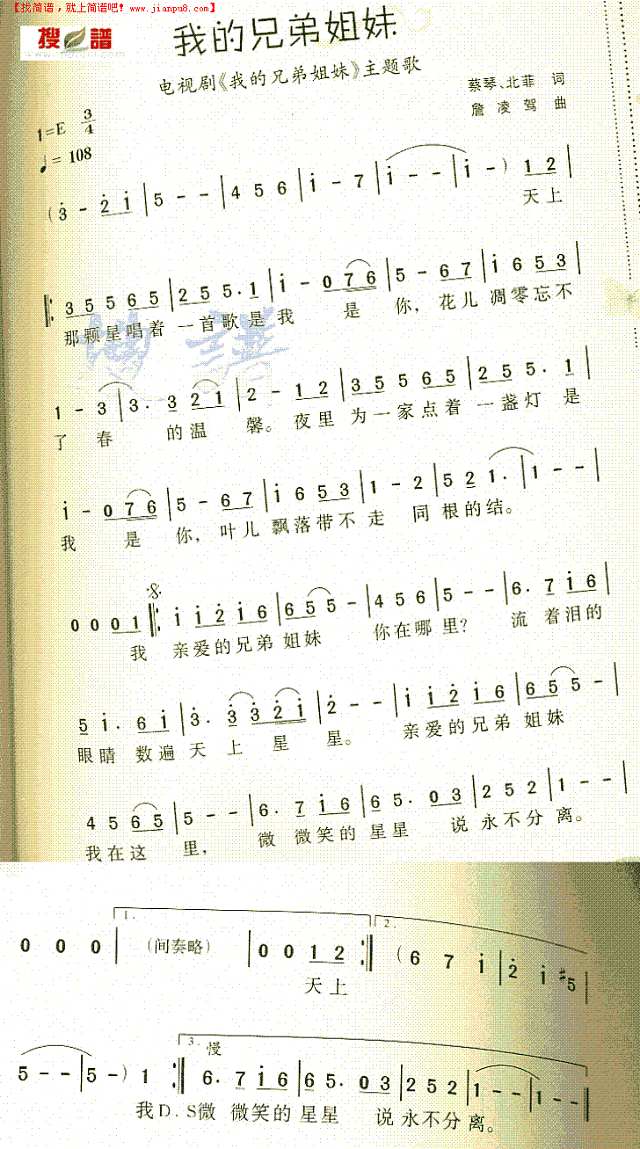 【找简谱，就上简谱吧！www.jianpu8.com】
搜谱
我的兄弟姐妹
电视剧《我的兄弟姐妹》主题歌
蔡琴、北菲 词
詹凌驾 曲
1=E 3/4
♩= 108
(3 - 2 1 | 5 - - | 4 5 6 | i - 7 | i - - | i - ) 1 2 |
天上
3 5 5 6 5 | 2 5 5 . 1 | i - 0 7 6 | 5 - 6 7 | i 6 5 3 |
那颗星唱着 一首歌是我 是 你，花儿 凋零忘不
1 - 3 | 3 . 3 2 1 | 2 - 1 2 | 3 5 5 6 5 | 2 5 5 . 1 |
了 春 的温 馨。夜里 为一家点着 一盏灯 是
i - 0 7 6 | 5 - 6 7 | i 6 5 3 | 1 - 2 | 5 2 1 . | 1 - - |
我 是 你，叶儿 飘落带不 走 同 根的结。
0 0 0 1 | i i 2 i 6 | 6 5 5 - | 4 5 6 | 5 - - | 6 . 7 i 6 |
我 亲爱的兄弟 姐妹 你在哪 里？ 流 着泪的
5 i . 6 i | 3 . 3 3 2 i | 2 - - | i i 2 i 6 | 6 5 5 - |
眼睛 数遍 天 上 星 星。 亲爱的兄弟 姐妹
4 5 6 5 | 5 - - | 6 . 7 i 6 | 6 5 . 0 3 | 2 5 2 | 1 - - |
我在这 里， 微 微笑的 星星 说 永不分 离。
0 0 0 | 1. (间奏略) | 0 0 1 2 :| 2. ( 6 7 i | 2 i #5 |
天上
5 - - | 5 - ) 1 :| 3. 慢 6 . 7 i 6 | 6 5 . 0 3 | 2 5 2 | 1 - - | 1 - - |
我D.S微 微笑的 星星 说 永不分 离。